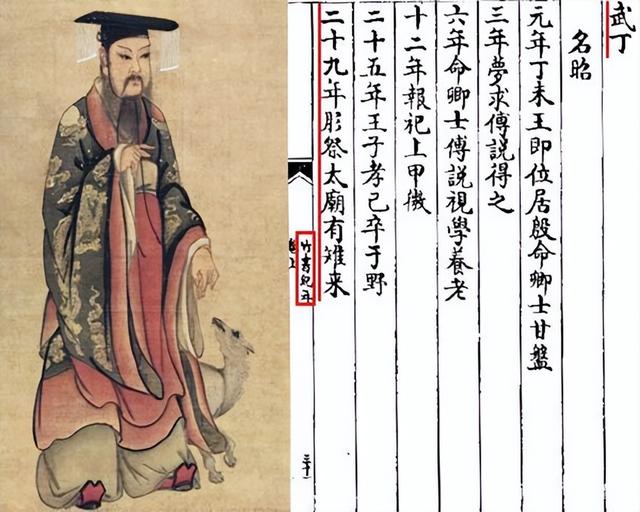 武丁
名昭
元年丁未王即位居殷命卿士甘盤
三年夢求傅說得之
六年命卿士傅說視學養老
十二年報祀上甲微
二十五年王子孝己卒于野
二十九年肜祭太廟有雉来
竹書紀年